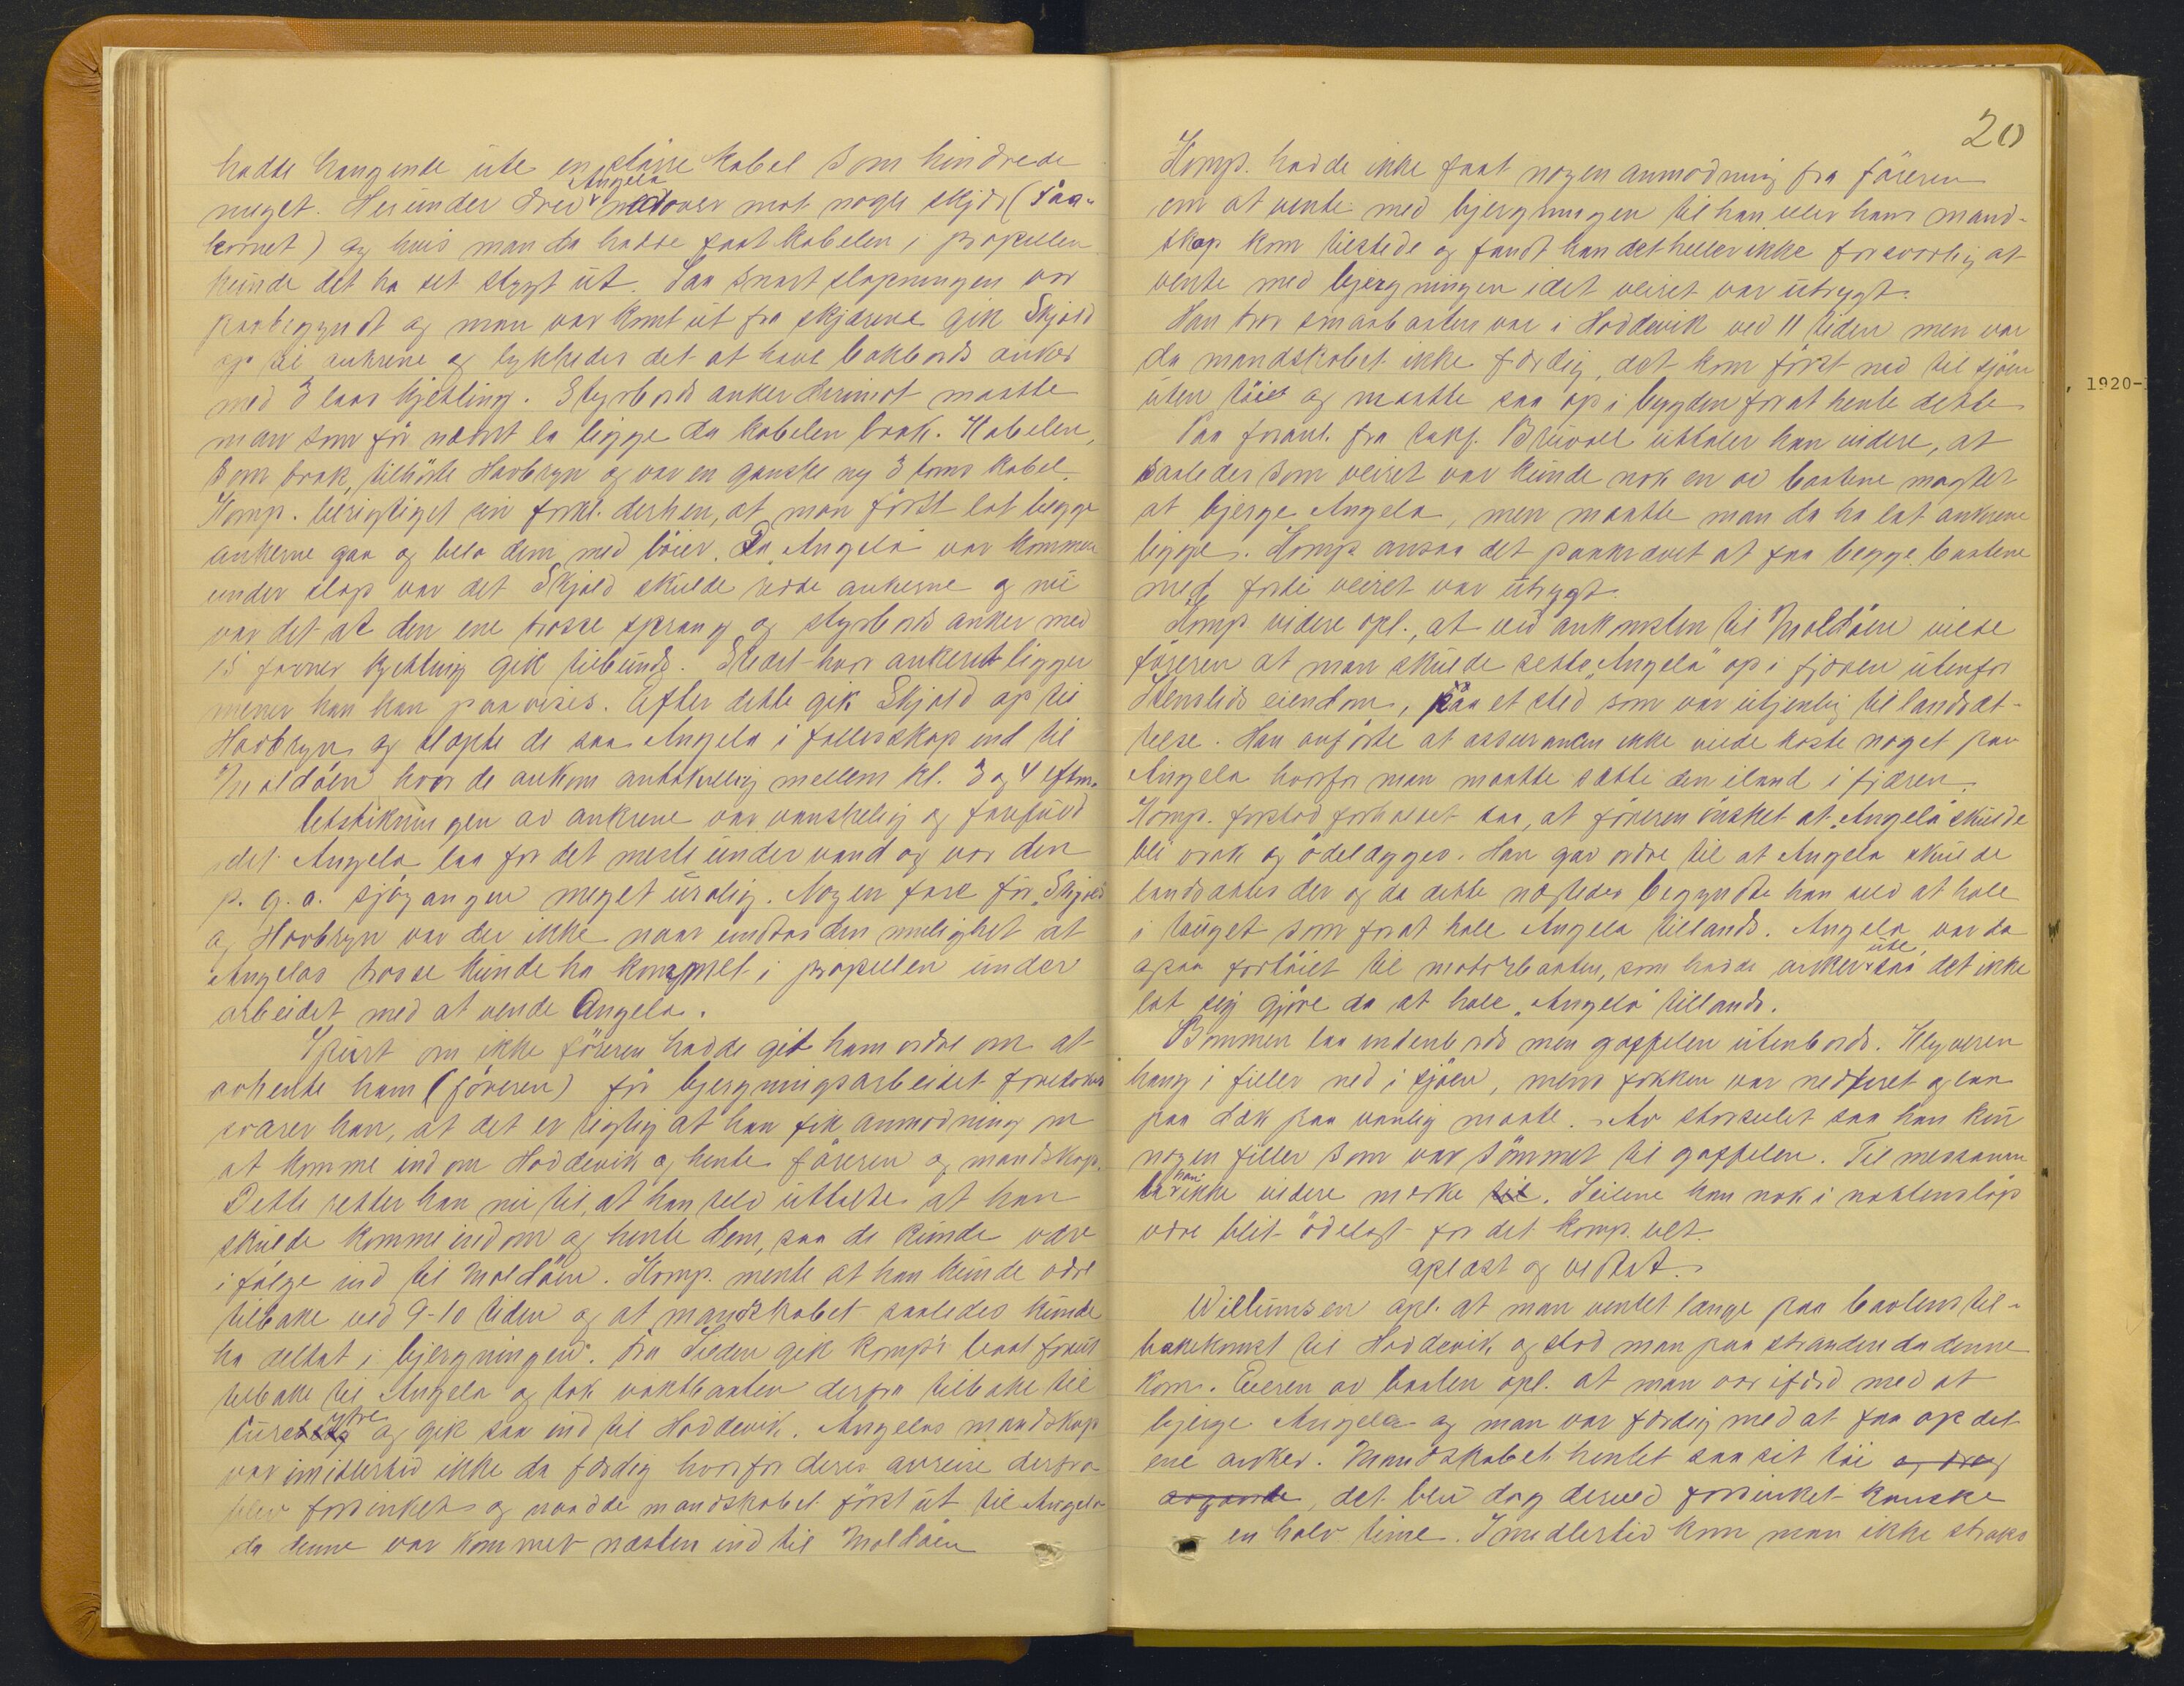 hadde hængende ute en större kabel som hindrede
meget. Herunder drev Angela nedover mot nogle skjær (Saa-
kornet) og hvis man da hadde faat kabelen i propellen
kunde det ha set stygt ut. Saa snart slapningen var
paabegyndt og man var kommet ut fra skjærene gik Skjold
op til ankrene og lykkedes det at have bakbords anker
med 3 laas kjetting. Styrbords anker derimot maatte
man som för nævnt la ligge da kabelen brak. Kabelen,
som brak, tilhörte Havbryn og var en ganske ny 3 toms kabel.
Komp. berigtiget sin forkl. derhen, at man först lot begge
ankerne gaa og bela dem med böier. Da Angela var kommen
under slæp var det Skjold skulde redde ankerne og nu
var det at den ene trosse sprang og styrbords anker med
15 favner kjetting gik tilbunds. Stedet hvor ankeret ligger
mener han kan paavises. Efter dette gik Skjold op til
Havbryn og slæpte de saa Angela i fællesskap ind til
Moldöen hvor de ankom antakelig mellem kl. 3 og 4 eftm.
Utstikningen av ankrene var vanskelig og farefuld
idet Angela laa for det meste under vand og var den
p. g. a. sjögangen meget urolig. Nogen fare for „Skjold
og Havbryn var der ikke naar undtas den mulighet at
Angelas trosse kunde ha kommet i propellen under
arbeidet med at vende Angela.
Spurt om ikke föreren hadde git ham ordre om at
avhente ham (föreren) för bjergningsarbeidet foretokes
svarer han, at det er rigtig at han fik anmodning om
at komme ind om Hoddevik og hente föreren og mandskap.
Dette retter han nu til, at han selv uttalte at han
skulde komme indom og hente dem, saa de kunde være
i fölge ind til Moldöen. Komp. mente at han kunde være
tilbake ved 9-10 tiden og at mandskabet saaledes kunde
ha deltat i bjergningen. Fra Leden gik komp's baat forut
tilbake til Angela og tok vaktbaaten derfra tilbake til
ytre og gik saa ind til Hoddevik. Angelas mandskap
var imidlertid ikke da færdig hvorfor deres avreise derfra
blev forsinket og naadde mandskabet först ut til Angela
da denne var kommet næsten ind til Moldöen
20
Komp. hadde ikke faat nogen anmodning fra föreren
om at vente med bjergningen til han eller hans mand-
skap kom tilstede og fandt han det heller ikke forsvarlig at
vente med bjergningen idet veiret var utrygt.
Han tror smaabaaten var i Hoddevik ved 11 tiden men var
da mandskabet ikke færdig, det kom först ned til sjöen
uten töiet og maatte saa op i bygden for at hente dette
Paa foranl. fra sakf. Bruvoll uttaler han videre, at
saaledes som veiret var kunde nok en av baatene magtet
at bjerge Angela, men maatte man da ha lat ankrene
ligge. Komp ansaa det paakrævet at faa begge baatene
med, fordi veiret var utrygt.
Komp videre opl., at ved ankomsten til Moldöen vilde
föreren at man skulde sette „Angela" op i fjæren utenfor
Stensleds eiendom, paa et sted som var utjenlig til landsæt-
telse. Han anförte at assurancen ikke vilde koste noget paa
Angela hvorfor man maatte sætte den iland i fjæren.
Komp. forstod forholdet saa, at föreren önsket at „Angela" skulde
bli vrak og ödelægges. Han gav ordre til at Angela skulde
landsættes der og da dette nægtedes begyndte han selv at hale
i tauget som for at hale Angela tillands. Angela var da
ogsaa fortöiet til motorbaaten, som hadde anker ute saa det ikke
lot sig gjöre da at hale „Angela" tillands.
Bommen laa indenbords men gaffelen utenbords. Klyveren
hang i filler ned i sjöen, mens fokken var nedfiret og laa
paa dæk paa vanlig maate. Av storseilet saa han kun
nogen filler som var sömmet til gaffelen. Til mesanen
la han ikke videre merke til. Seilene kan nok i nattens löp
være blit ödelagt for det komp. vet.
oplæst og vedtat.
Willumsen opl. at man ventet længe paa baatens til-
bakekomst til Hoddevik og stod man paa stranden da denne
kom. Eieren av baaten opl. at man var ifærd med at
bjerge Angela og man var færdig med at faa op det
ene anker. Mandskabet hentet saa sit töi og drog
avgaarde, det blev dog derved forsinket kanske
en halv time. Imidlertid kom man ikke straks
, 1920-1